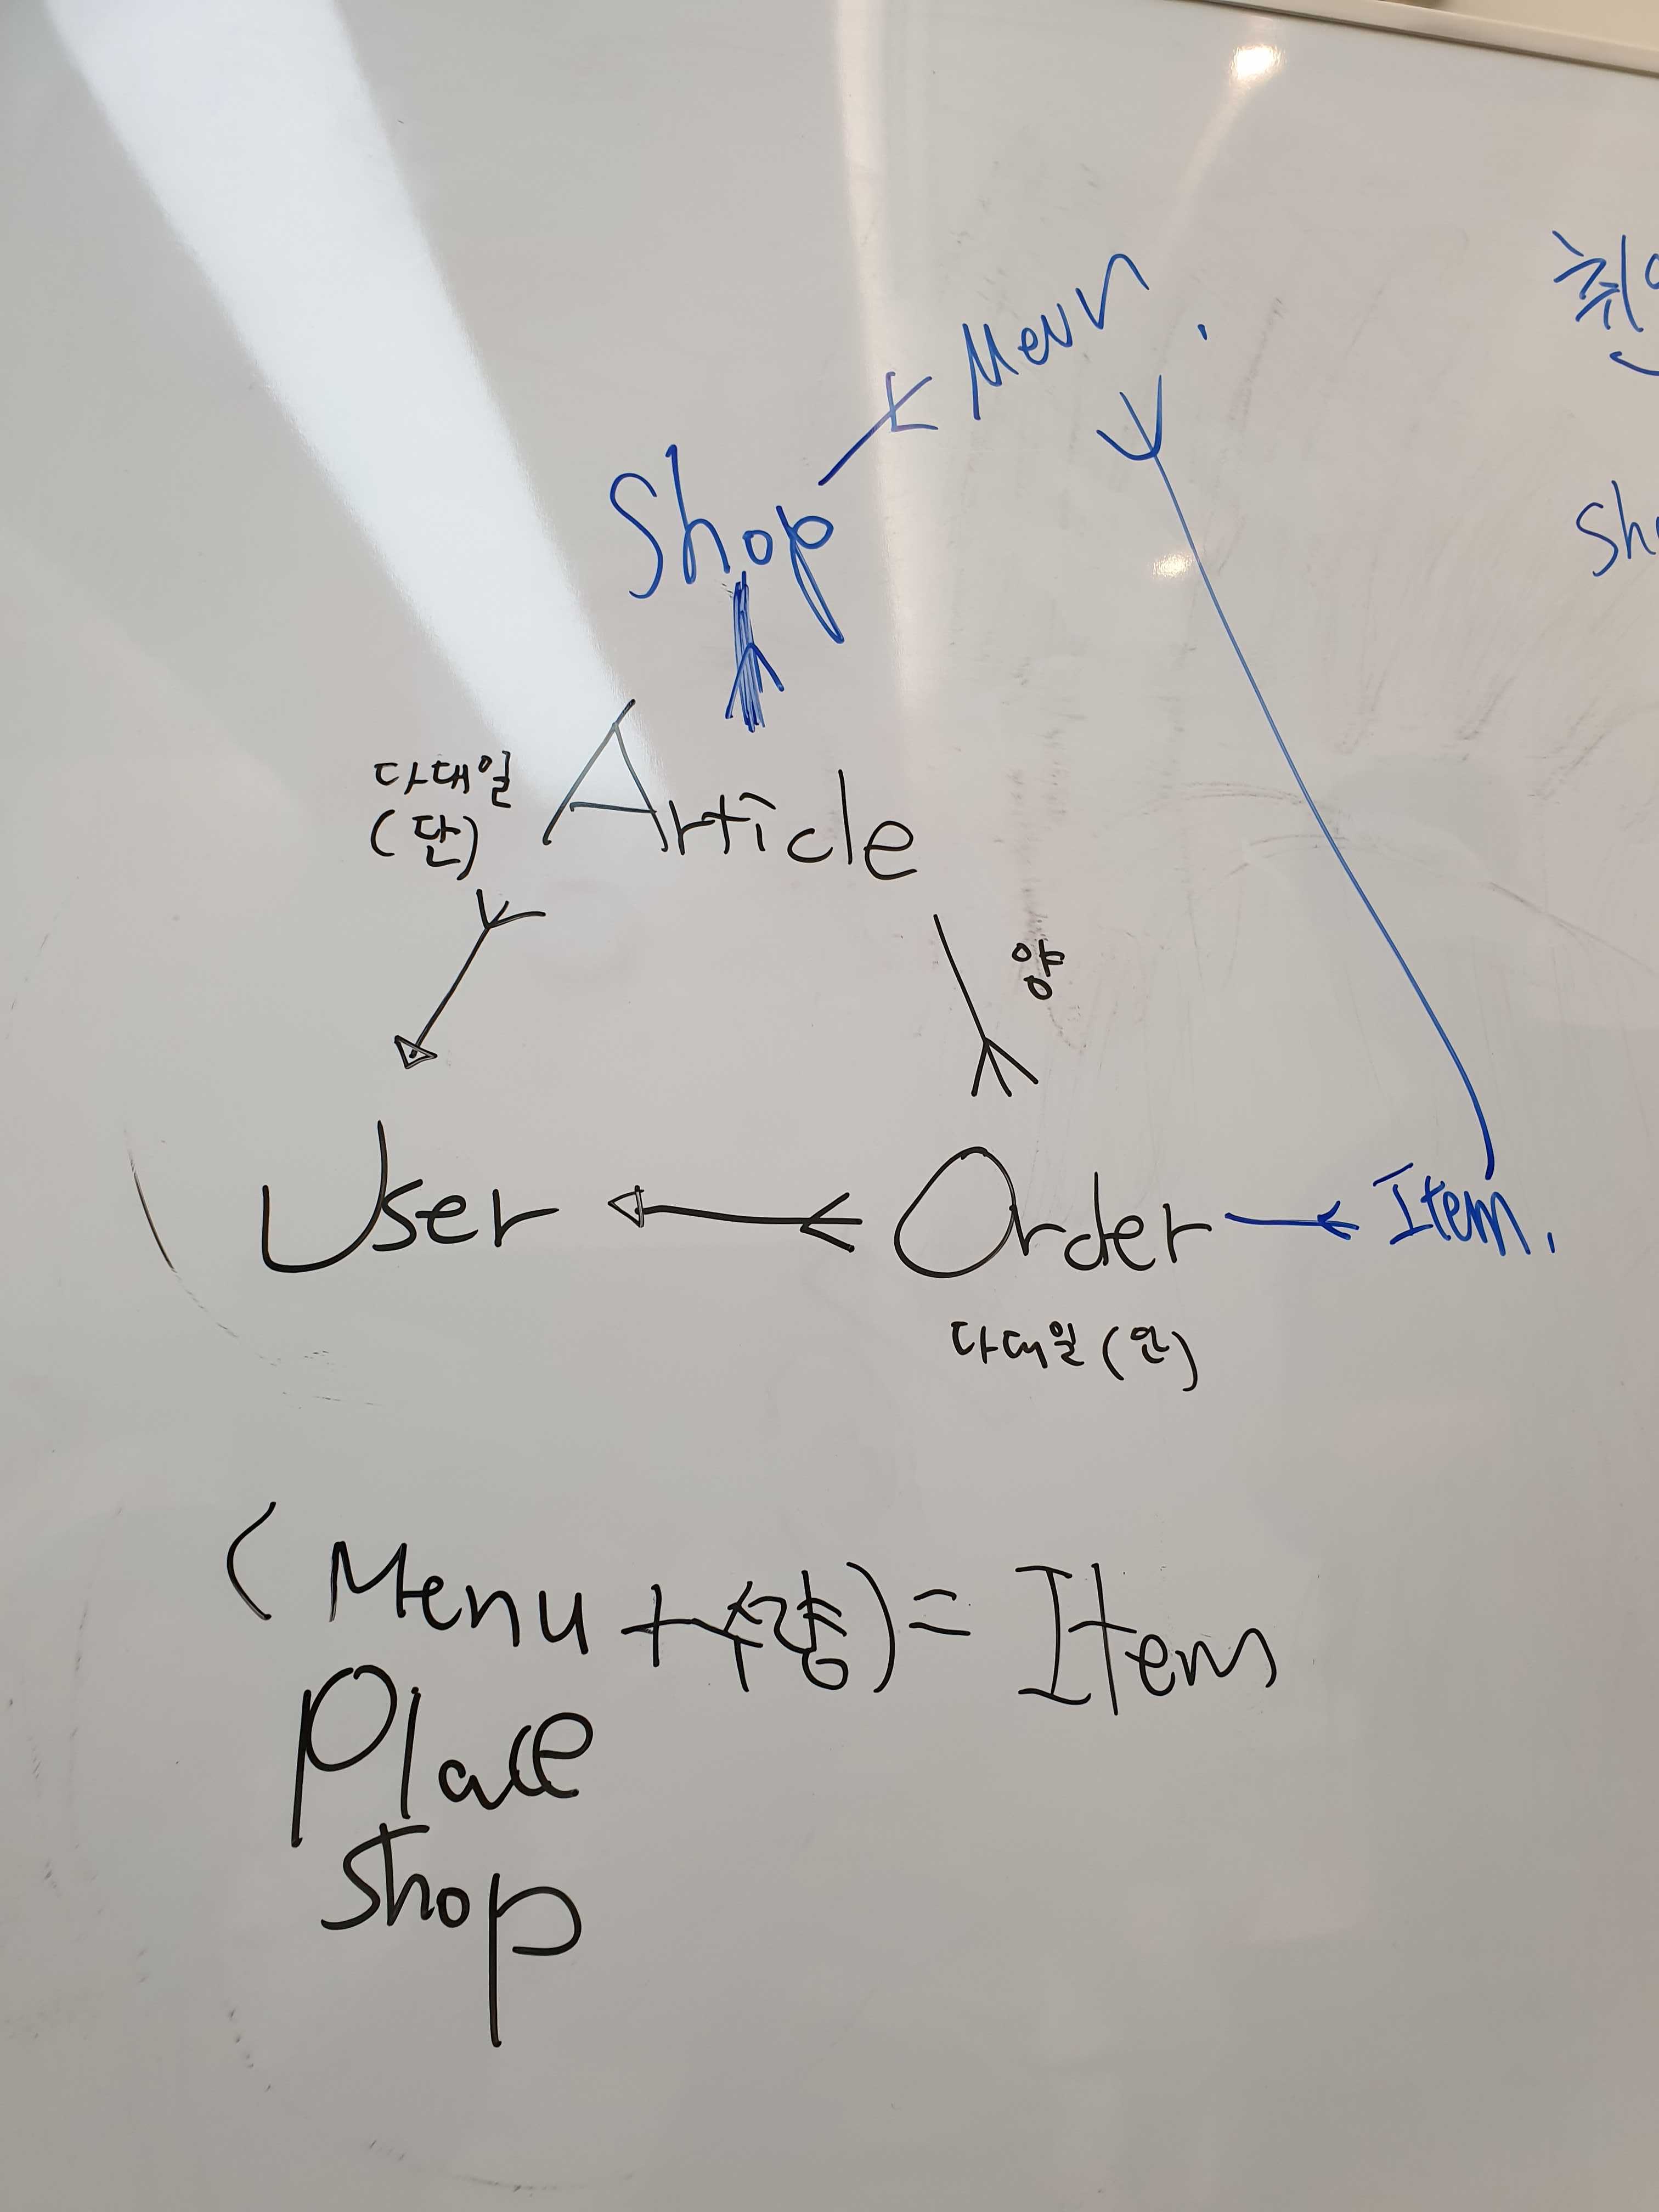 Menu.
Shop
다대일
(단)
Article
양
User
Order
Item.
다대일 (단)
(Menu + 수량) = Item
Place
Shop